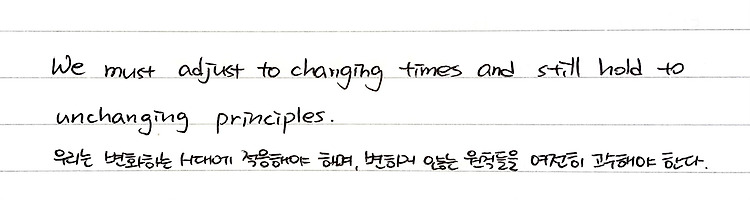 We must adjust to changing times and still hold to
unchanging principles.
우리는 변화하는 시대에 적응해야 하며, 변하지 않는 원칙들을 여전히 고수해야 한다.